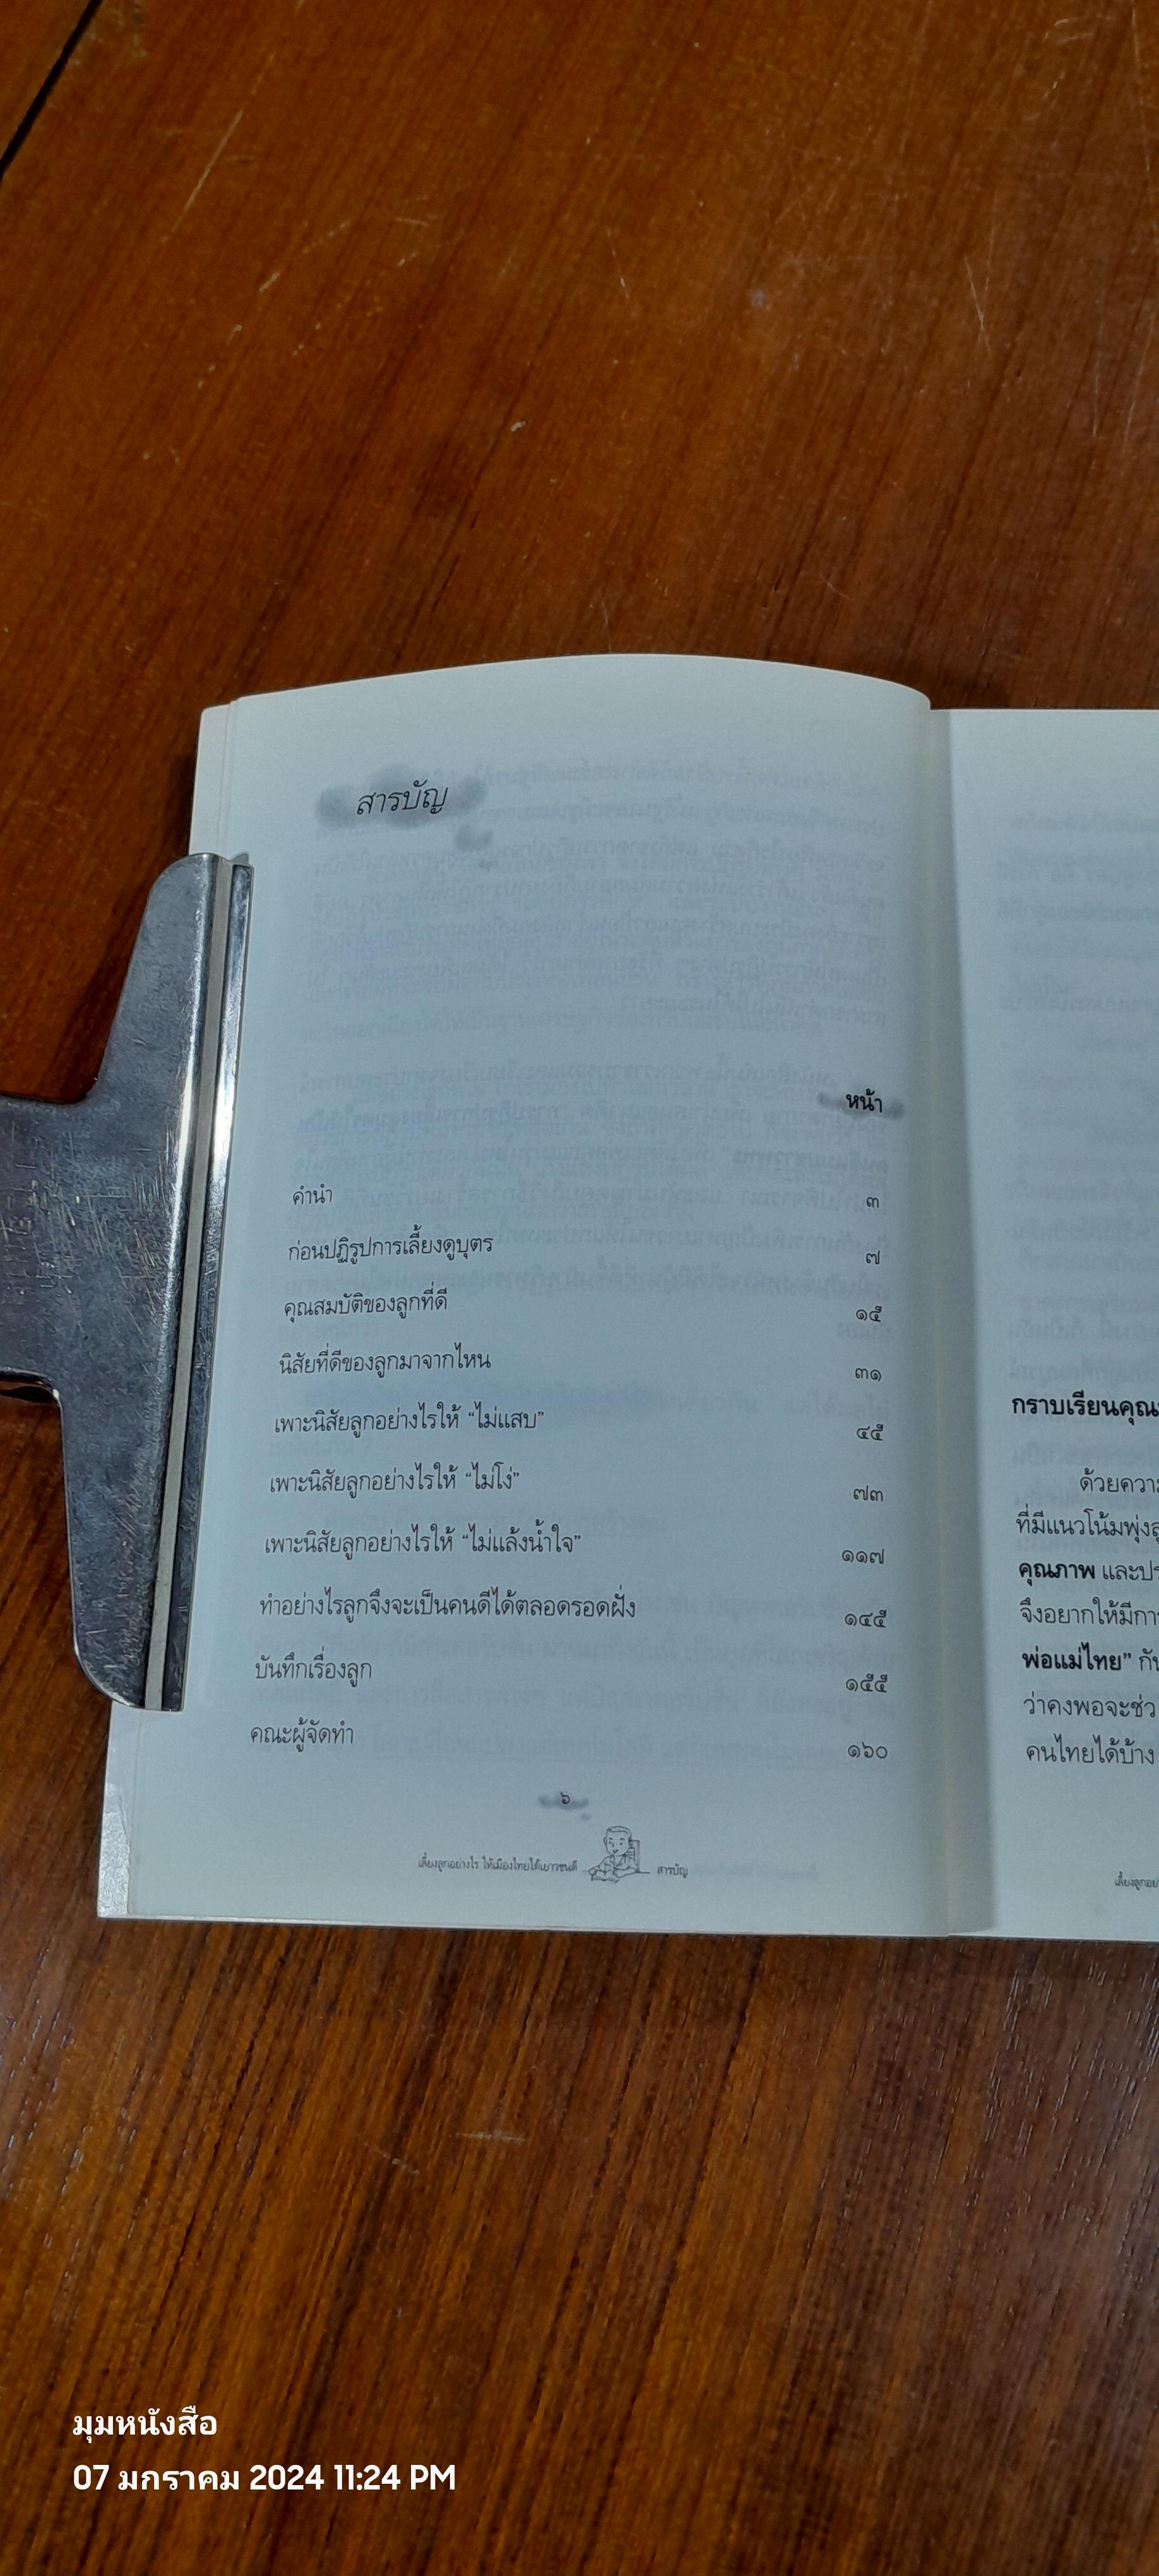 สารบัญ
หน้า
คำนำ ๓
ก่อนปฏิรูปการเลี้ยงดูบุตร ๗
คุณสมบัติของลูกที่ดี ๑๕
นิสัยที่ดีของลูกมาจากไหน ๓๑
เพาะนิสัยลูกอย่างไรให้ “ไม่แสบ” ๔๕
เพาะนิสัยลูกอย่างไรให้ “ไม่โง่” ๗๓
เพาะนิสัยลูกอย่างไรให้ “ไม่แล้งน้ำใจ” ๑๑๗
ทำอย่างไรลูกจึงจะเป็นคนดีได้ตลอดรอดฝั่ง ๑๔๕
บันทึกเรื่องลูก ๑๕๕
คณะผู้จัดทำ ๑๖๐
๖
เลี้ยงลูกอย่างไร ให้เมืองไทยได้เยาวชนดี สารบัญ
กราบเรียนคุณ
ด้วยความ
ที่มีแนวโน้มพุ่งสู
คุณภาพ และปร
จึงอยากให้มีกา
พ่อแม่ไทย” กัน
ว่าคงพอจะช่ว
คนไทยได้บ้าง
เลี้ยงลูกอย
มุมหนังสือ
07 มกราคม 2024 11:24 PM